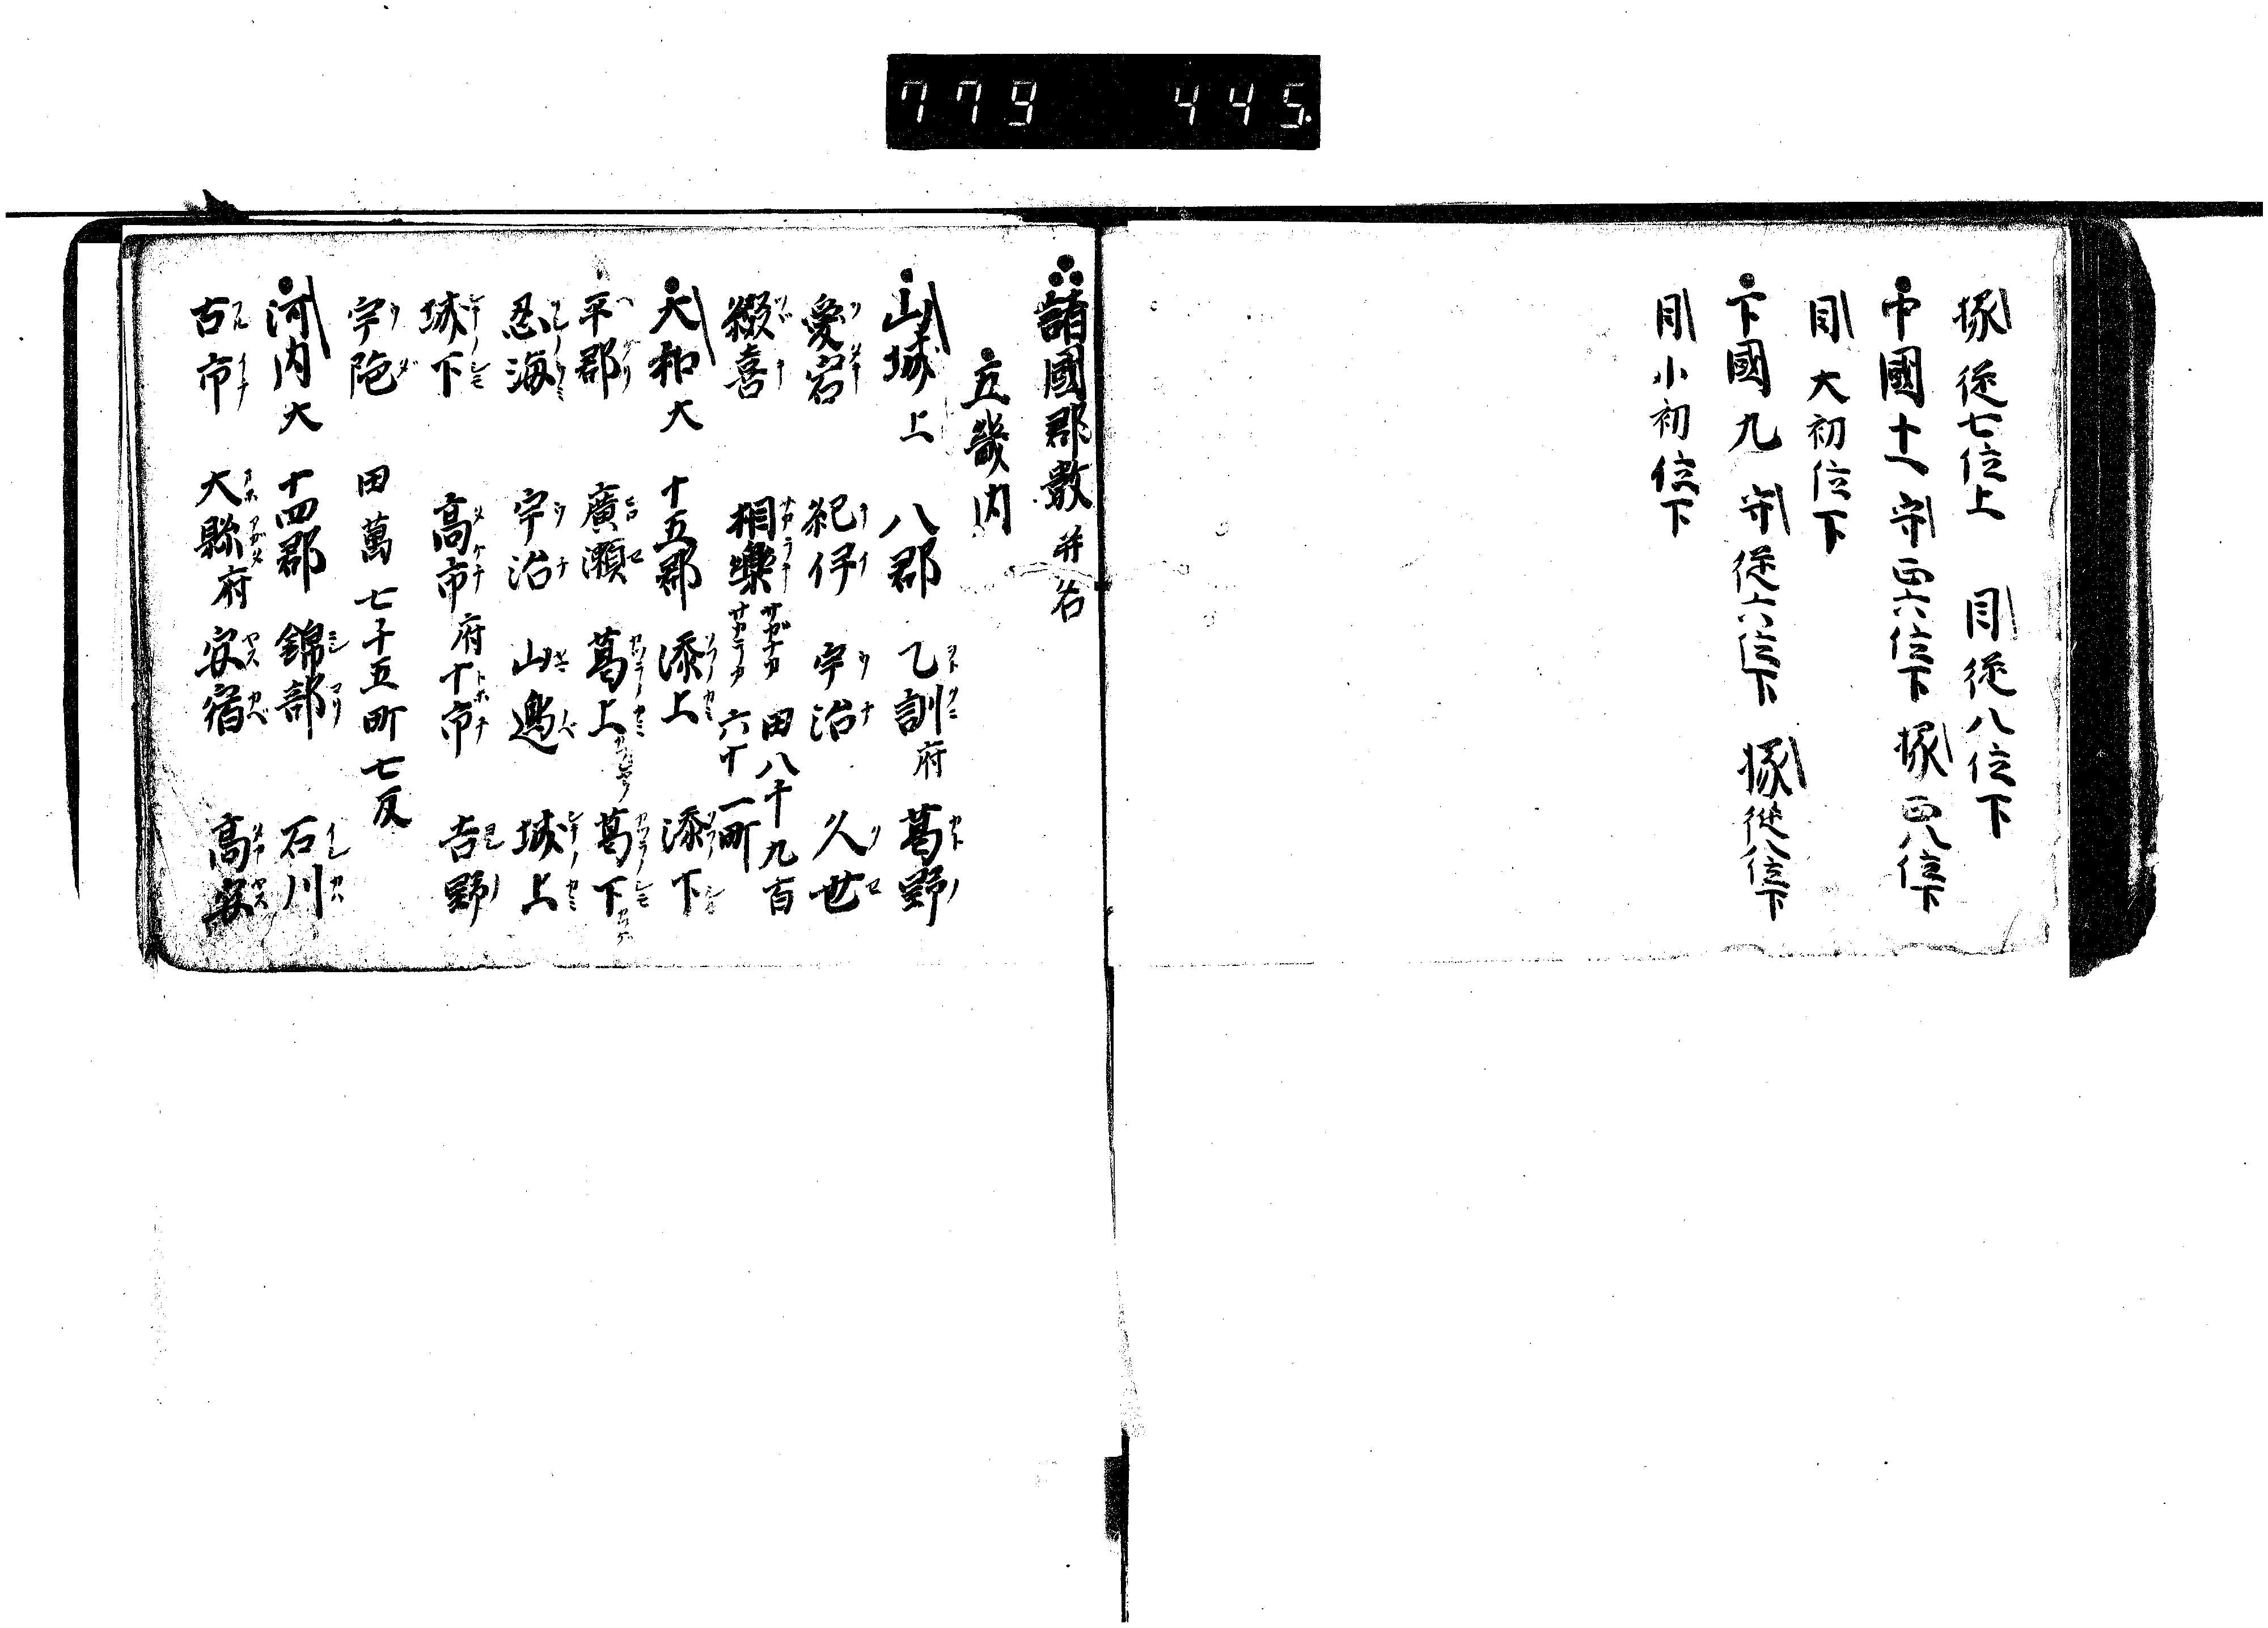 779 445.
掾 従七位上 目 従八位下
中國十一 守 正六位下 掾 正八位下
目 大初位下
下國九 守 従六位下 掾 従八位下
目 小初位下
諸國郡數 并名
五畿内
山城 上 八郡 乙訓 府 葛野
愛宕 紀伊 宇治 久世
綴喜 相樂 田八千九百六十一町
大和 大 十五郡 添上 添下
平郡 廣瀬 葛上 葛下
忍海 宇治 山邊 城上
城下 高市 府 十市 吉野
宇陀 田萬七千五町七反
河内 大 十四郡 錦部 石川
古市 大縣 府 安宿 高安